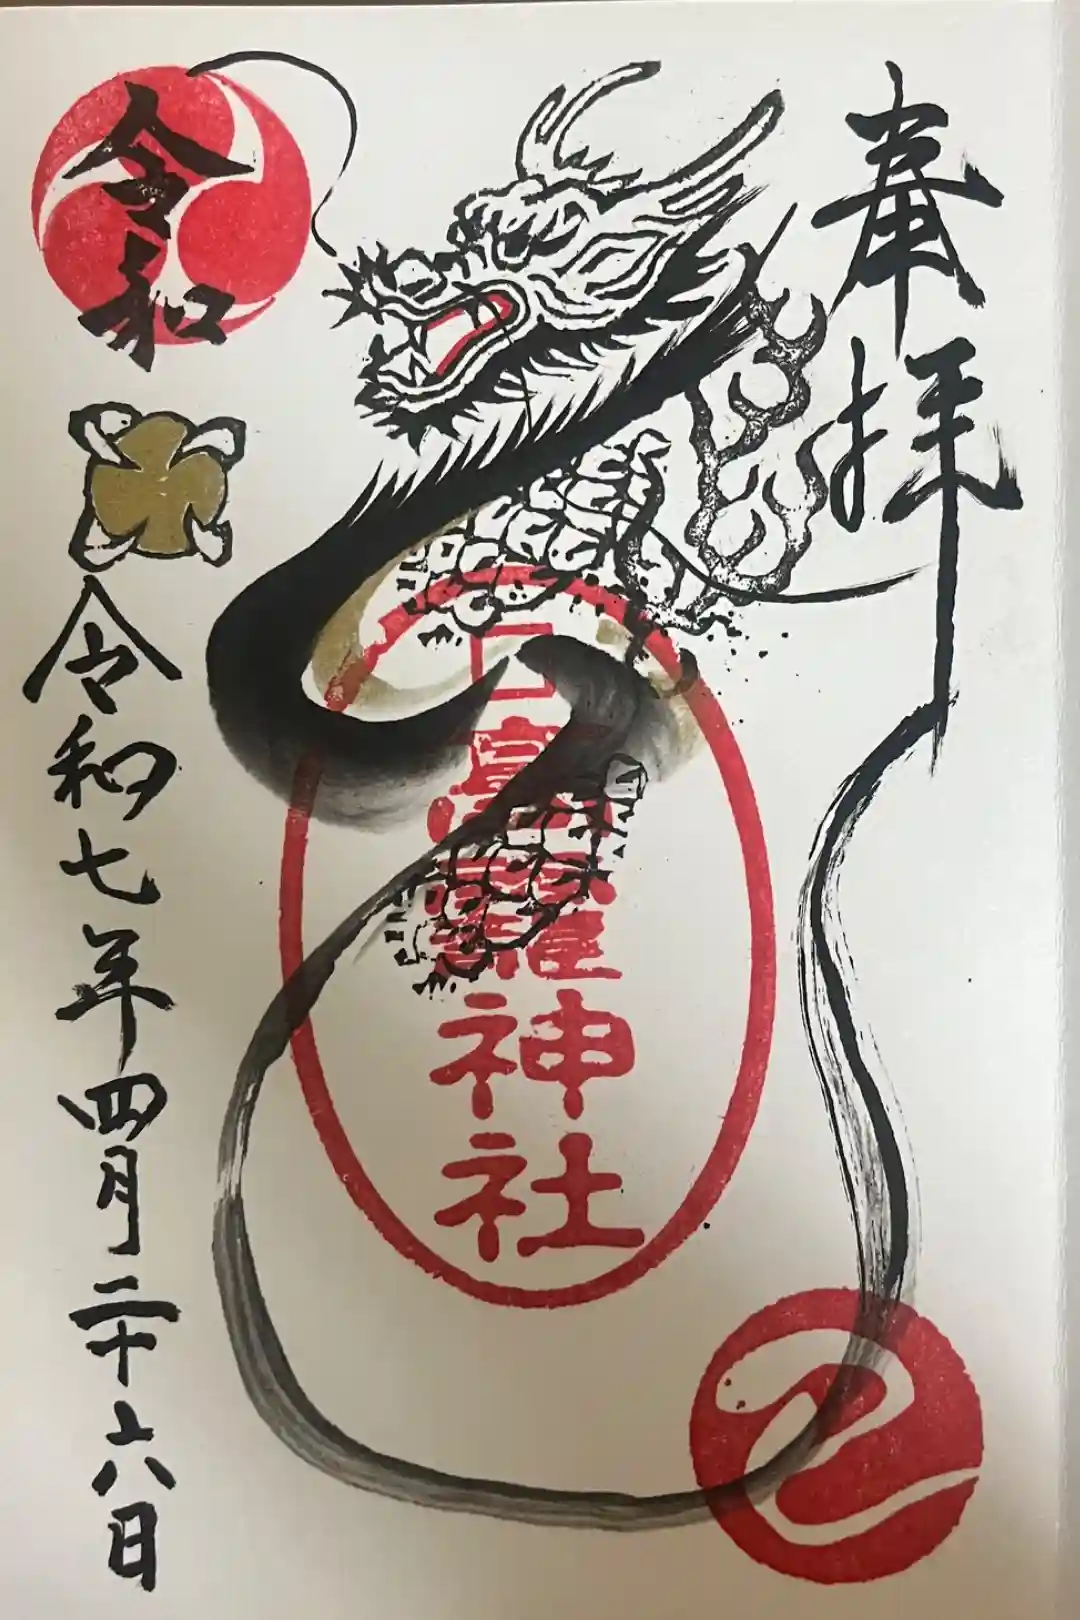 奉拝
高龗神社
令和
令和七年四月二十六日